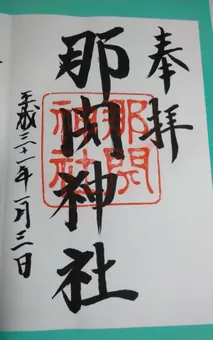 奉拝
那閇神社
那閇
神社
平成三十一年一月三日